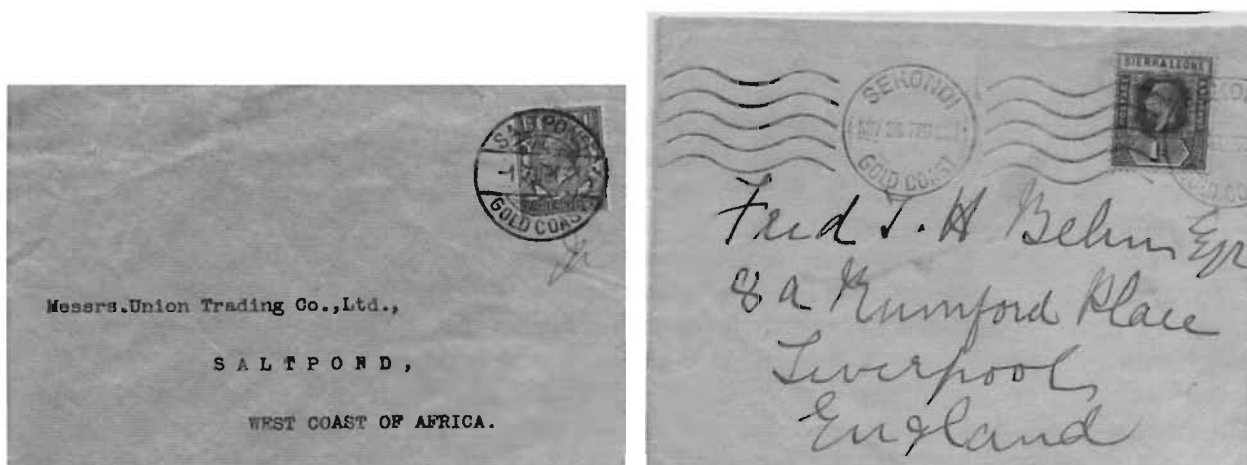 SALTPOND
GOLD COAST
Messrs.Union Trading Co.,Ltd.,
SALTPOND,
WEST COAST OF AFRICA.
SEKONDI
GOLD COAST
SIERRA LEONE
Fred J. H Behn Esqr
8a Rumford Place
Liverpool
England